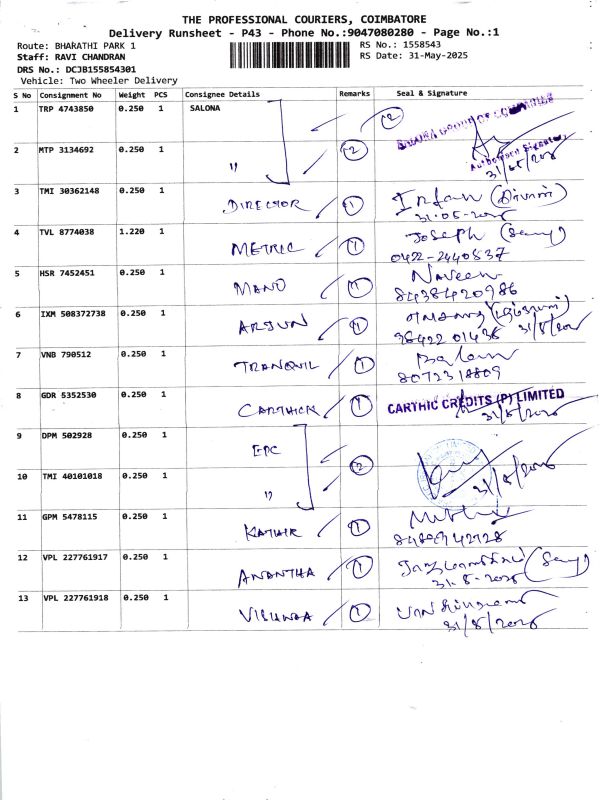 THE PROFESSIONAL COURIERS, COIMBATORE
Delivery Runsheet - P43 - Phone No.:9047080280 - Page No.:1
Route: BHARATHI PARK 1 RS No.: 1558543
Staff: RAVI CHANDRAN RS Date: 31-May-2025
DRS No.: DCJB155854301
Vehicle: Two Wheeler Delivery
S No Consignment No Weight PCS Consignee Details Remarks Seal & Signature
1 TRP 4743850 0.250 1 SALONA 2
2 MTP 3134692 0.250 1 " 2 Authorised Signatory
3 TMI 30362148 0.250 1 DIRECTOR 1 Irfan
31-05-2025
4 TVL 8774038 1.220 1 METRIC 1 Joseph
0422-2440537
5 HSR 7452451 0.250 1 MANO 1 Naveen
8438420986
6 IXM 508372738 0.250 1 ARJUN 1
98422 01436
7 VNB 790512 0.250 1 TRANQUIL 1
8072318809
8 GDR 5352530 0.250 1 CARTHICK 1 CARTHIC CREDITS (P) LIMITED
9 DPM 502928 0.250 1 EPC 2
10 TMI 40101018 0.250 1 "
11 GPM 5478115 0.250 1 KATHIR 1
12 VPL 227761917 0.250 1 ANANTHA 1
13 VPL 227761918 0.250 1 1